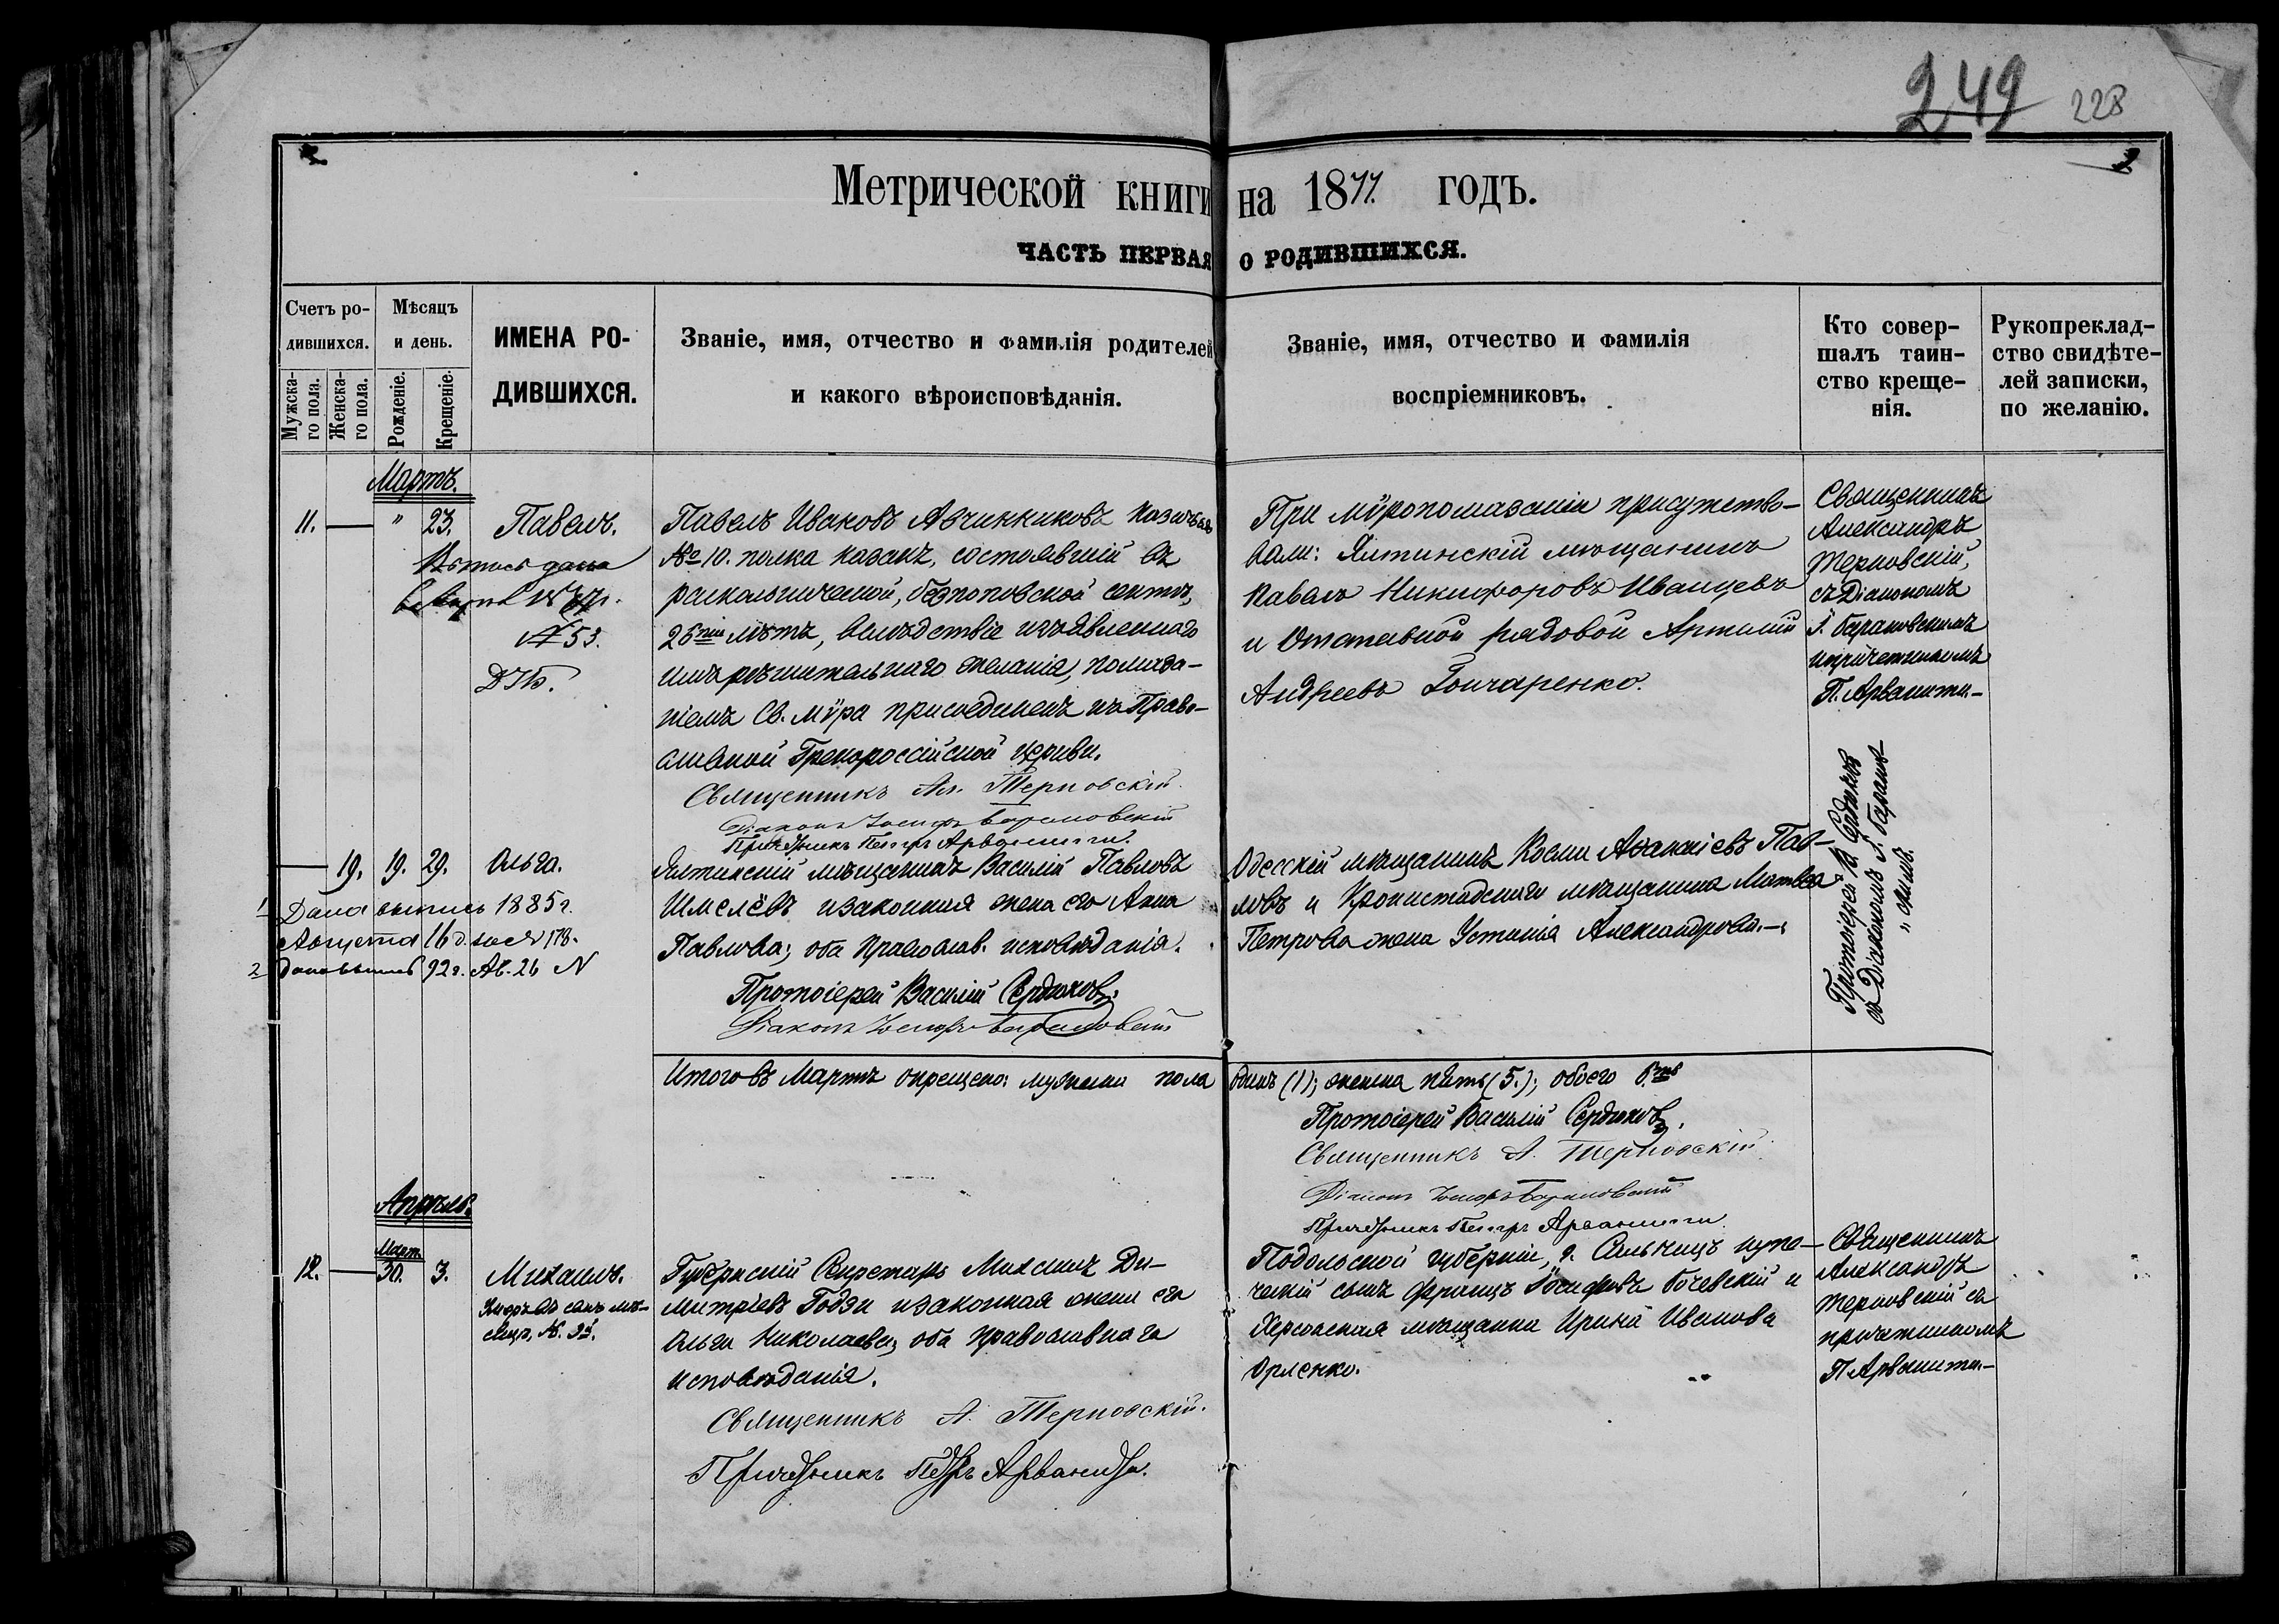 249 228
2.
2
Метрической книги на 1877. годъ.
ЧАСТЬ ПЕРВАЯ О РОДИВШИХСЯ.
Счетъ ро-
дившихся.
Мужска-
го пола.
Женска-
го пола.
Мѣсяцъ
и день.
Рожденіе.
Крещеніе.
ИМЕНА РО-
ДИВШИХСЯ.
Званіе, имя, отчество и фамилія родителей
и какого вѣроисповѣданія.
Званіе, имя, отчество и фамилія
воспріемниковъ.
Кто совер-
шалъ таин-
ство креще-
нія.
Рукоприклад-
ство свидѣте-
лей записки,
по желанію.
Мартъ.
11. — " 23. Павелъ.
№ 53.
Павелъ Ивановъ Авчинниковъ
№ 10. полка казакъ, состоявшій въ
раскольнической, безпоповской сектѣ,
26ти лѣтъ, вслѣдствіе изъявленнаго
имъ рѣшительнаго желанія, помаза-
ніемъ Св. Мѵра присоединенъ къ Право-
славной Грекороссійской церкви.
Священникъ Ал. Терновскій.
Діаконъ Іосифъ Барановскій
Причетникъ Петръ Арванити.
При мѵропомазаніи присутство-
вали: Ялтинскій мѣщанинъ
Павелъ Никифоровъ Иванцевъ
и Отставной рядовой Артемій
Андреевъ Гончаренко.
Священникъ
Александръ
Терновскій,
съ Діакономъ
І. Барановскимъ
и причетникомъ
П. Арванити.—
— 19. 19. 29. Ольга.
1 Дана выпись 1885 г.
Августа 16 д. за № 178.
2 Дана выпись 92 г. Ав. 26 N
Ялтинскій мѣщанинъ Василій Павловъ
Шмелёвъ и законная жена его Анна
Павлова; оба православ. исповѣданія.
Протоіерей Василій Сердюковъ.
Діаконъ Іосифъ Барановскій
Одесскій мѣщанинъ Косма Аѳанасіевъ Пав-
ловъ и Кронштадскаго мѣщанина Матвея
Петрова жена Устинія Александрова.—
Протоіерей В. Сердюковъ
съ Діакономъ І. Баранов-
Итого въ Мартѣ окрещено: мужеска пола одинъ (1); женска пять (5.); обоего 6.ть
Протоіерей Василій Сердюковъ.
Священникъ А. Терновскій.
Діаконъ Іосифъ Барановскій
Причетникъ Петръ Арванити.
Апрѣль.
Март.
12. — 30. 3. Михаилъ.
Губернскій Секретарь Михаилъ Ди-
митріевъ Годзи и законная жена его
Ольга Николаева, оба православнаго
исповѣданія.
Священникъ А. Терновскій.
Причетникъ Петръ Арванити.
Подольской губерніи, г. Сальницъ купе-
ческій сынъ Францъ Іосифовъ Бочевскій и
Херсонская мѣщанка Ирина Иванова
Орленко.
Священникъ
Александръ
Терновскій съ
причетникомъ
П. Арванити.—